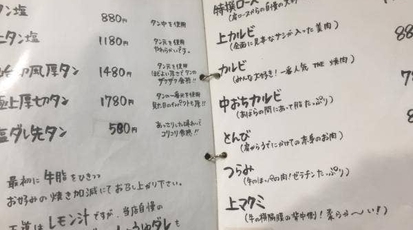 タン塩 880円 タン中を使用
上タン塩 1180円 タン元を使用 やわらかいです。
風厚タン 1480円 タン元を使用
極上厚切タン 1780円 タンの一番元を使用
塩ダレ先タン 580円 コリコリ食感!!
最初に 牛脂をひきって
お好みの焼き加減にてお召し上がり下さい。
王道は レモン汁ですが、当店自慢の
特撰ロース
上カルビ
(全面に見事なサシが入った美肉)
カルビ
(みんな大好き!一番人気 THE 焼肉)
中おちカルビ
(あばらの間にあって脂たっぷり)
とんび
(肩からうでにかけての赤身のお肉)
つらみ
(牛のほっぺの肉!ゼラチンたっぷり)
上マクミ
(牛の横隔膜の背中側!柔らか〜い!)